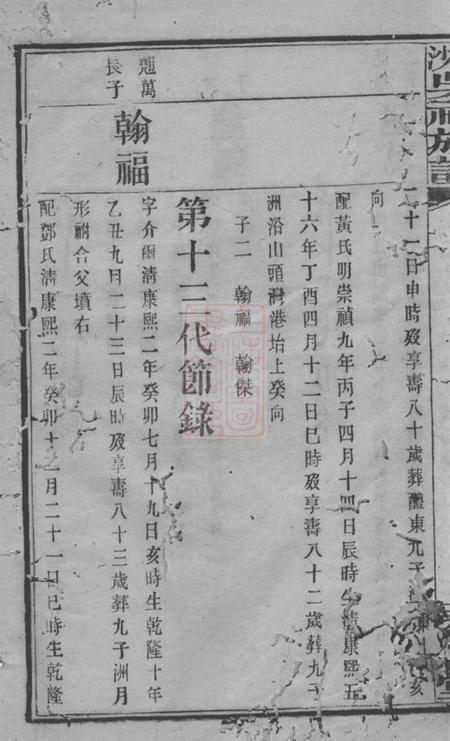 十二日申時歿享壽八十歲葬醴東九子
亥
向
配黃氏明崇禎九年丙子四月十四日辰時生清康熙五
十六年丁酉四月十二日巳時歿享壽八十二歲葬九子
洲沿山頭灣港坮上癸向
子二 翰福 翰傑
第十三代節錄
翹萬
長子
翰福
字介爾清康熙二年癸卯七月十九日亥時生乾隆十年
乙丑九月二十三日辰時歿享壽八十三歲葬九子洲月
形祔合父墳右
配鄧氏清康熙二年癸卯十二月二十一日巳時生乾隆